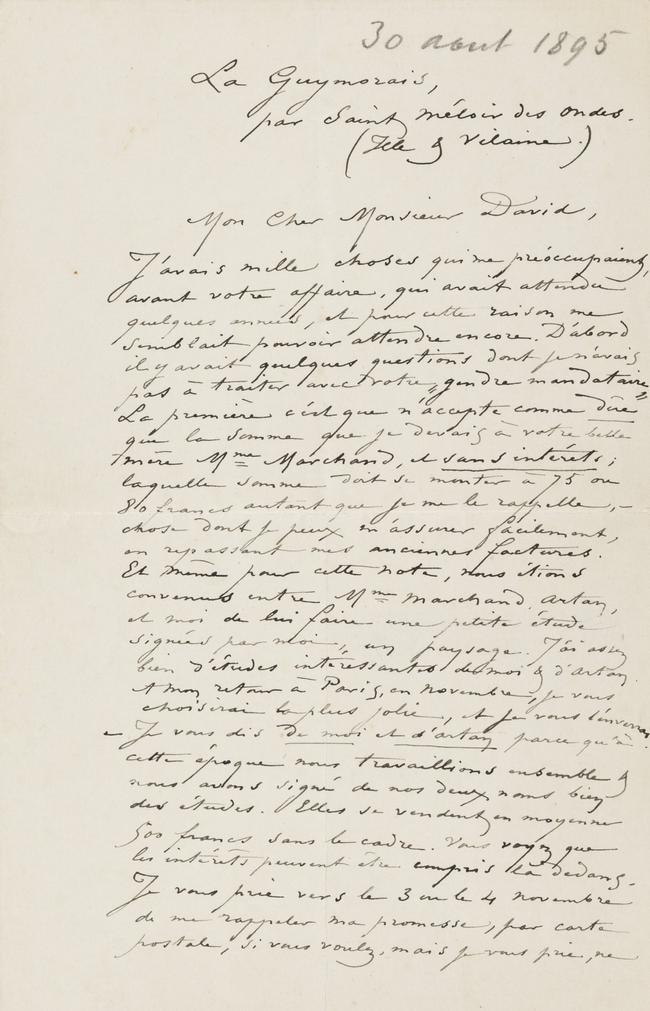 30 aout 1895
La Guymorais,
par Saint Méloir des ondes.
(Ille & Vilaine.)
Mon Cher Monsieur David,
J'avais mille choses qui me préoccupaient,
avant votre affaire, qui avait attendu
quelques années, et pour cette raison me
semblait pouvoir attendre encore. D'abord
il y avait quelques questions dont je n'avais
pas à traiter avec votre „gendre mandataire"
La première c'est que n'accepte comme dûe
que la somme que je devais à votre belle
mère Mme Marchand, et sans intérêts;
laquelle somme doit se monter à 75 ou
80 francs autant que je me le rappelle,–
chose dont je peux m'assurer facilement,
en repassant mes anciennes factures.
Et même pour cette note, nous étions
convenus entre Mme Marchand, Artan,
et moi de lui faire une petite étude
signées par moi, un paysage. J'ai assez
bien d'études intéressantes de moi & d'Artan
A mon retour à Paris, en novembre, je vous
choisirai la plus jolie, et je vous l'enverrai.
– Je vous dis de moi et d'artan parce qu'à
cette époque nous travaillions ensemble &
nous avons signé de nos deux noms bien
des études. Elles se vendent en moyenne
500 francs sans le cadre. Vous voyez que
les intérêts peuvent être compris là dedans.
Je vous prie vers le 3 ou le 4 novembre
de me rappeler ma promesse, par carte
postale, si vous voulez, mais je vous prie, ne